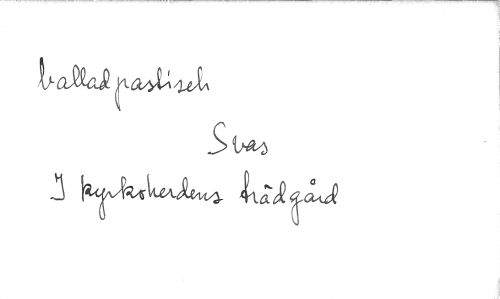 balladpastisch
Svas
I kyrkoherdens trädgård